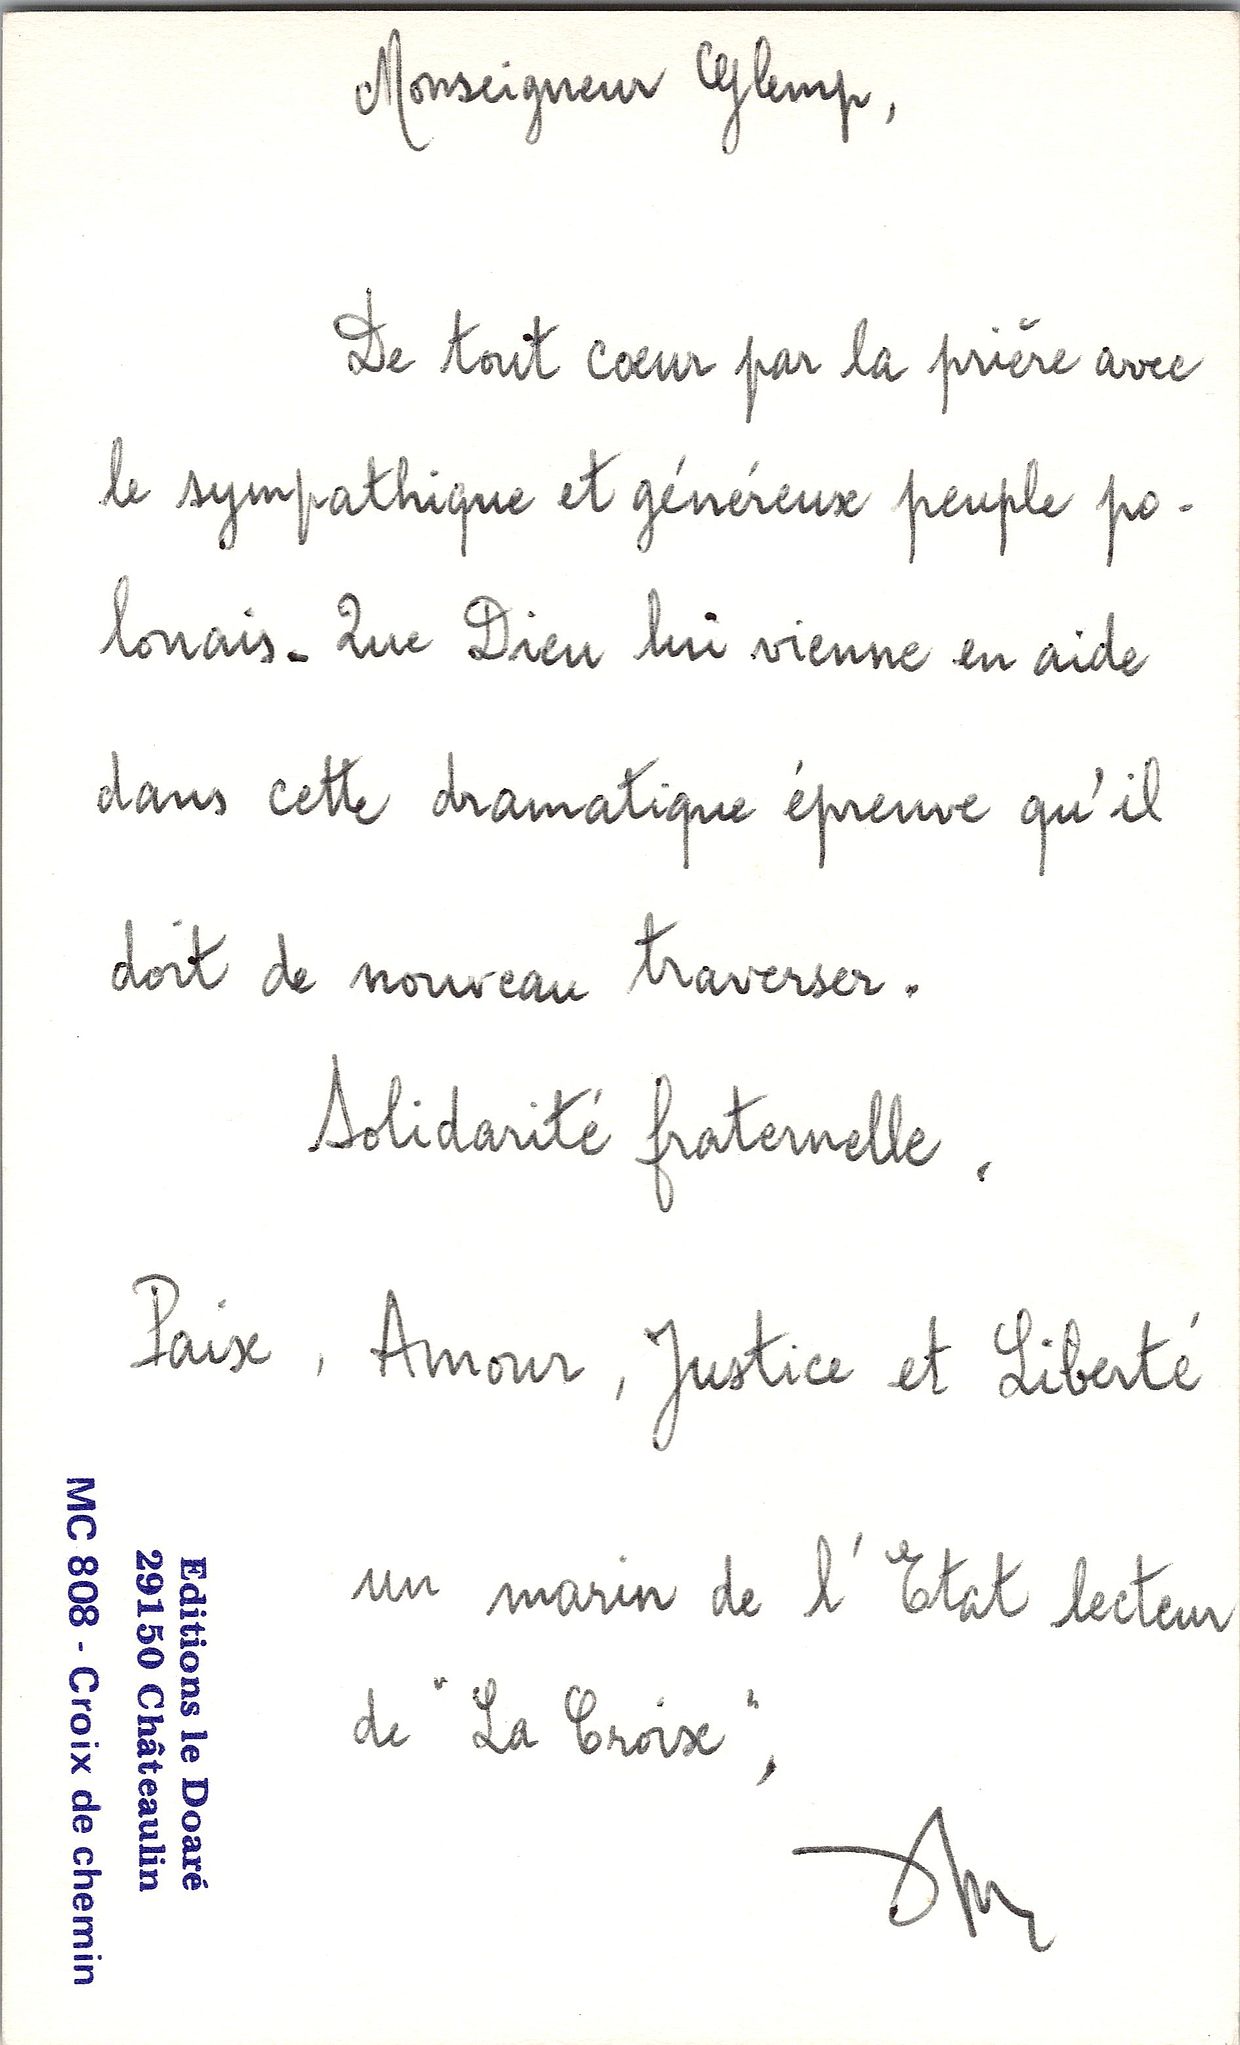 Monseigneur Glemp,
De tout cœur par la prière avec
le sympathique et généreux peuple po-
lonais. Que Dieu lui vienne en aide
dans cette dramatique épreuve qu'il
doit de nouveau traverser.
Solidarité fraternelle,
Paix, Amour, Justice et Liberté
un marin de l'Etat lecteur
de "La Croix",
Editions le Doaré
29150 Châteaulin
MC 808 - Croix de chemin